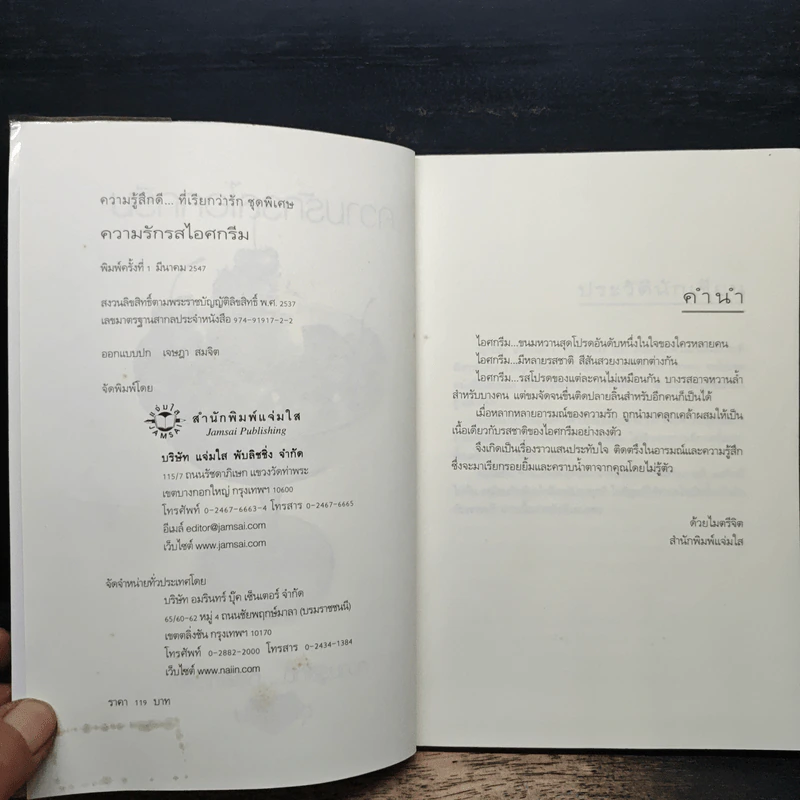 ความรู้สึกดี... ที่เรียกว่ารัก ชุดพิเศษ
ความรักรสไอศกรีม
พิมพ์ครั้งที่ 1 มีนาคม 2547
สงวนลิขสิทธิ์ตามพระราชบัญญัติลิขสิทธิ์ พ.ศ. 2537
เลขมาตรฐานสากลประจำหนังสือ 974-91917-2-2
ออกแบบปก เจษฎา สมจิต
จัดพิมพ์โดย
สำนักพิมพ์แจ่มใส
Jamsai Publishing
บริษัท แจ่มใส พับลิชชิ่ง จำกัด
115/7 ถนนรัชดาภิเษก แขวงวัดท่าพระ
เขตบางกอกใหญ่ กรุงเทพฯ 10600
โทรศัพท์ 0-2467-6663-4 โทรสาร 0-2467-6665
อีเมล์ editor@jamsai.com
เว็บไซต์ www.jamsai.com
จัดจำหน่ายทั่วประเทศโดย
บริษัท อมรินทร์ บุ๊ค เซ็นเตอร์ จำกัด
65/60-62 หมู่ 4 ถนนชัยพฤกษ์มาลา (บรมราชชนนี)
เขตตลิ่งชัน กรุงเทพฯ 10170
โทรศัพท์ 0-2882-2000 โทรสาร 0-2434-1384
เว็บไซต์ www.naiin.com
ราคา 119 บาท
คำนำ
ไอศกรีม...ขนมหวานสุดโปรดอันดับหนึ่งในใจของใครหลายคน
ไอศกรีม...มีหลายรสชาติ สีสันสวยงามแตกต่างกัน
ไอศกรีม...รสโปรดของแต่ละคนไม่เหมือนกัน บางรสอาจหวานล้ำ
สำหรับบางคน แต่ขมจัดจนขื่นติดปลายลิ้นสำหรับอีกคนก็เป็นได้
เมื่อหลากหลายอารมณ์ของความรัก ถูกนำมาคลุกเคล้าผสมให้เป็น
เนื้อเดียวกับรสชาติของไอศกรีมอย่างลงตัว
จึงเกิดเป็นเรื่องราวแสนประทับใจ ติดตรึงในอารมณ์และความรู้สึก
ซึ่งจะมาเรียกรอยยิ้มและคราบน้ำตาจากคุณโดยไม่รู้ตัว
ด้วยไมตรีจิต
สำนักพิมพ์แจ่มใส